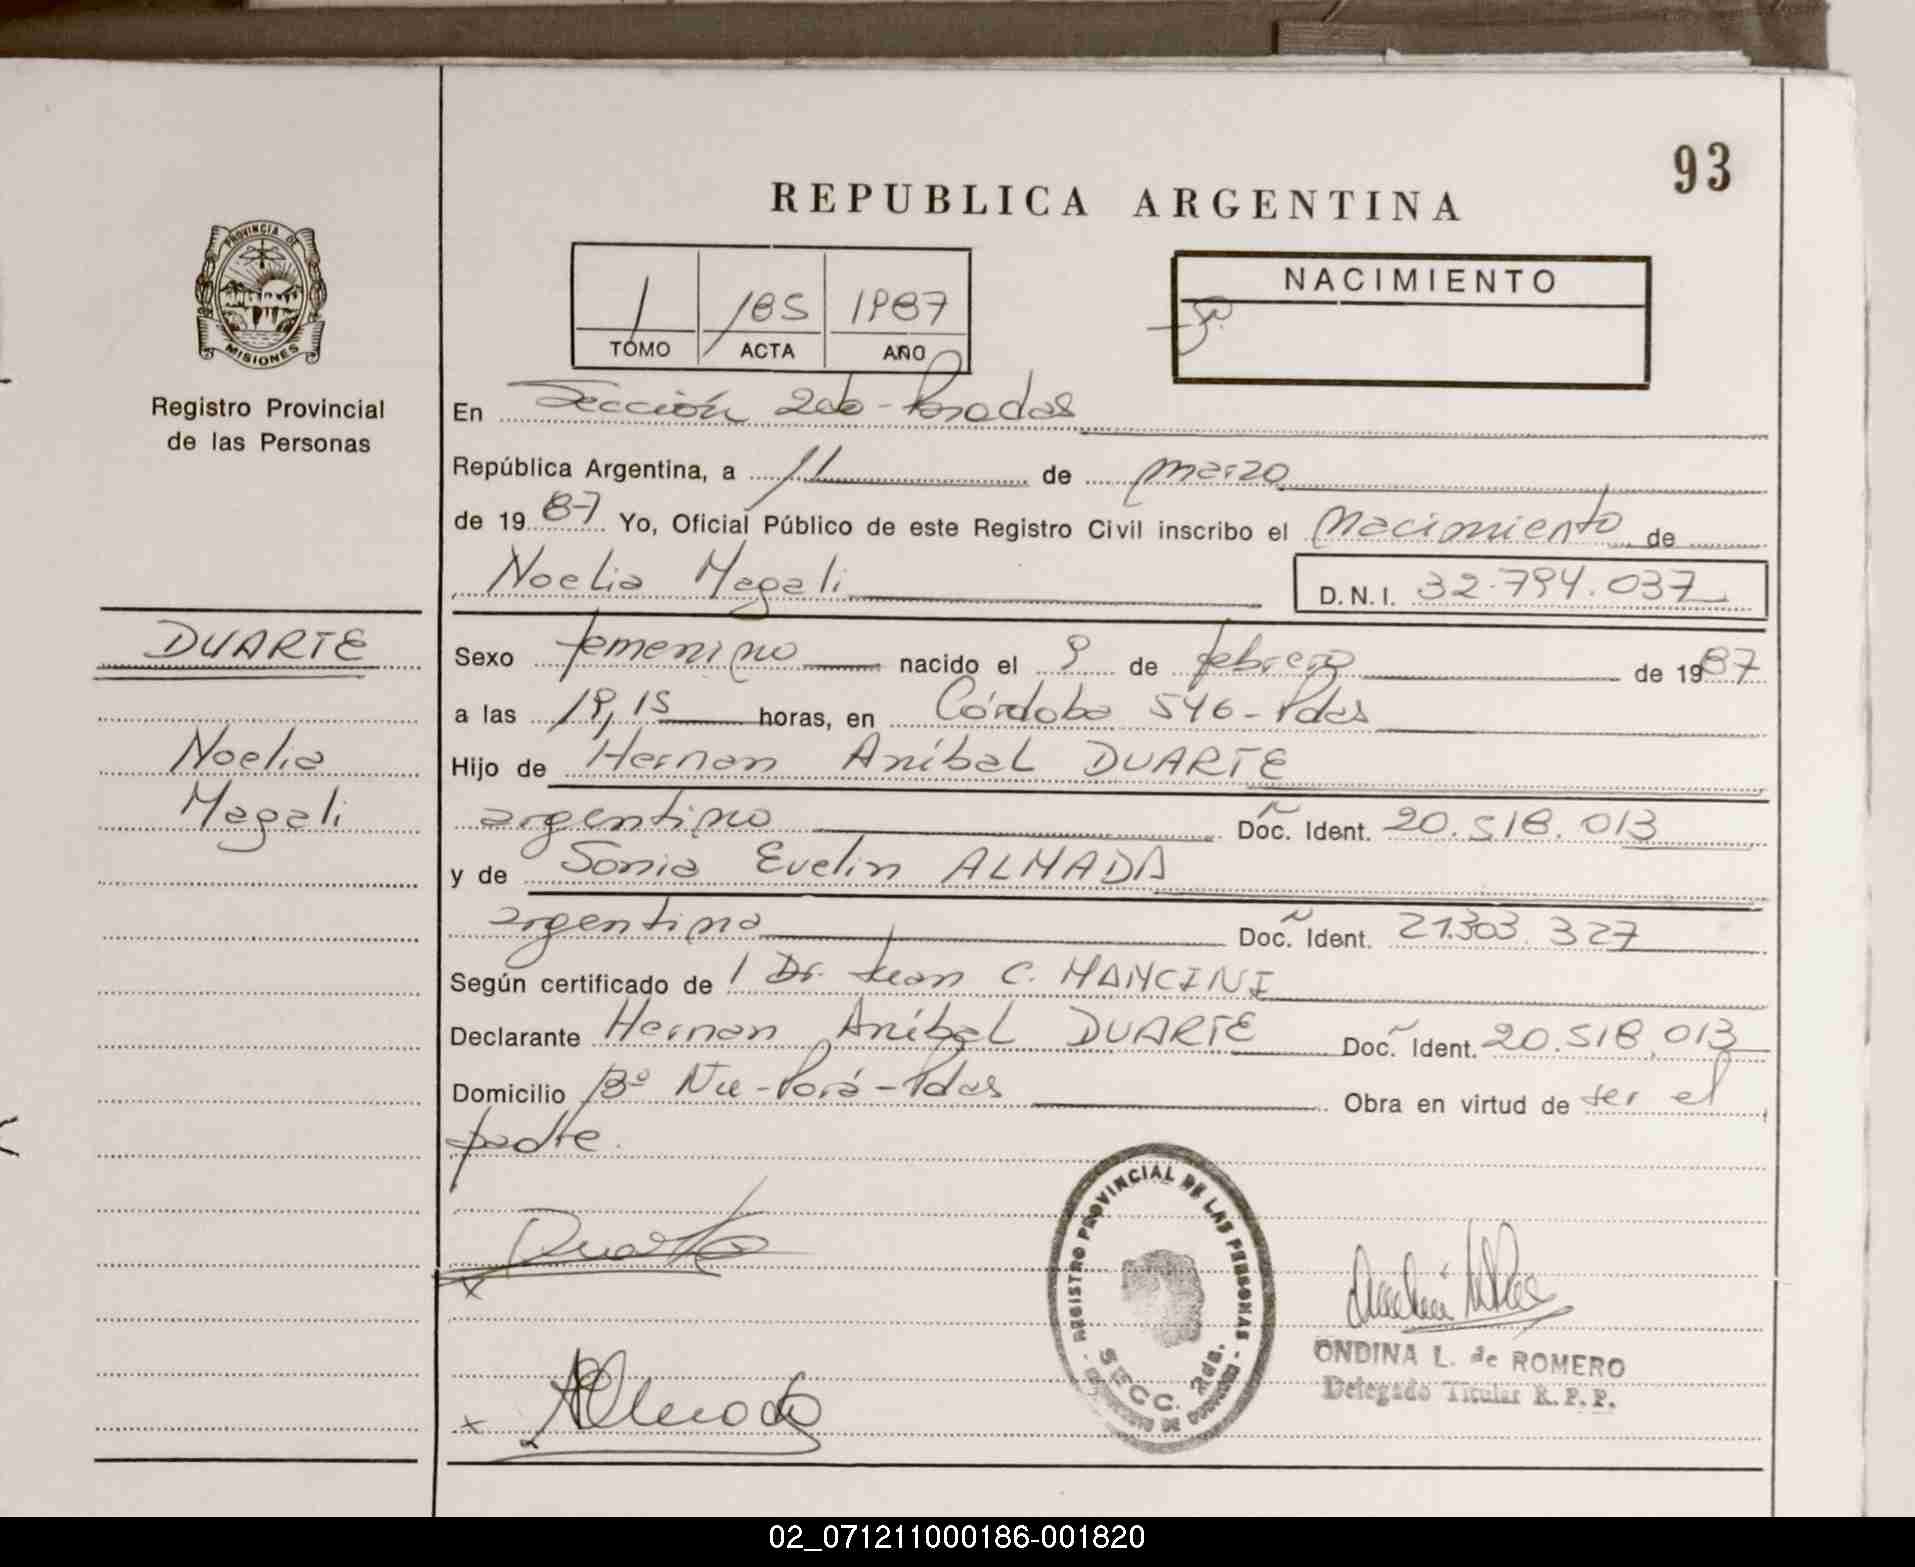 93
REPUBLICA ARGENTINA
PROVINCIA DE
MISIONES
Registro Provincial
de las Personas
1 185 1987
TOMO ACTA AÑO
NACIMIENTO
En Sección 2da - Posadas
República Argentina, a 11 de marzo
de 1987 Yo, Oficial Público de este Registro Civil inscribo el Nacimiento de
Noelia Magali D.N.I. 32.794.037
DUARTE
Noelia
Magali
Sexo femenino nacido el 9 de febrero de 1987
a las 19,15 horas, en Córdoba 546 - Pdas
Hijo de Hernan Aníbal DUARTE
argentino Doc. Ident. 20.518.013
y de Sonia Evelin ALMADA
argentina Doc. Ident. 21.303.327
Según certificado de 1 Dr. Juan C. MANCINI
Declarante Hernan Aníbal DUARTE Doc. Ident. 20.518.013
Domicilio Bº Ñu-Porá - Pdas Obra en virtud de ser el
padre.
Duarte
x
Almada
x
REGISTRO PROVINCIAL DE LAS PERSONAS
SECC. 2da.
ONDINA L. de ROMERO
Delegado Titular R.P.P.
02_071211000186-001820